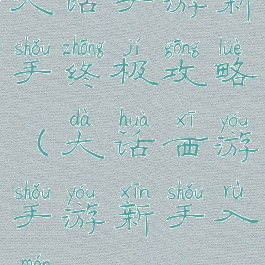 大话手游新
shǒu zhōng jí gōng lüè
手终极攻略
dà huà xī yóu
（大话西游
shǒu yóu xīn shǒu rù
手游新手入
mén